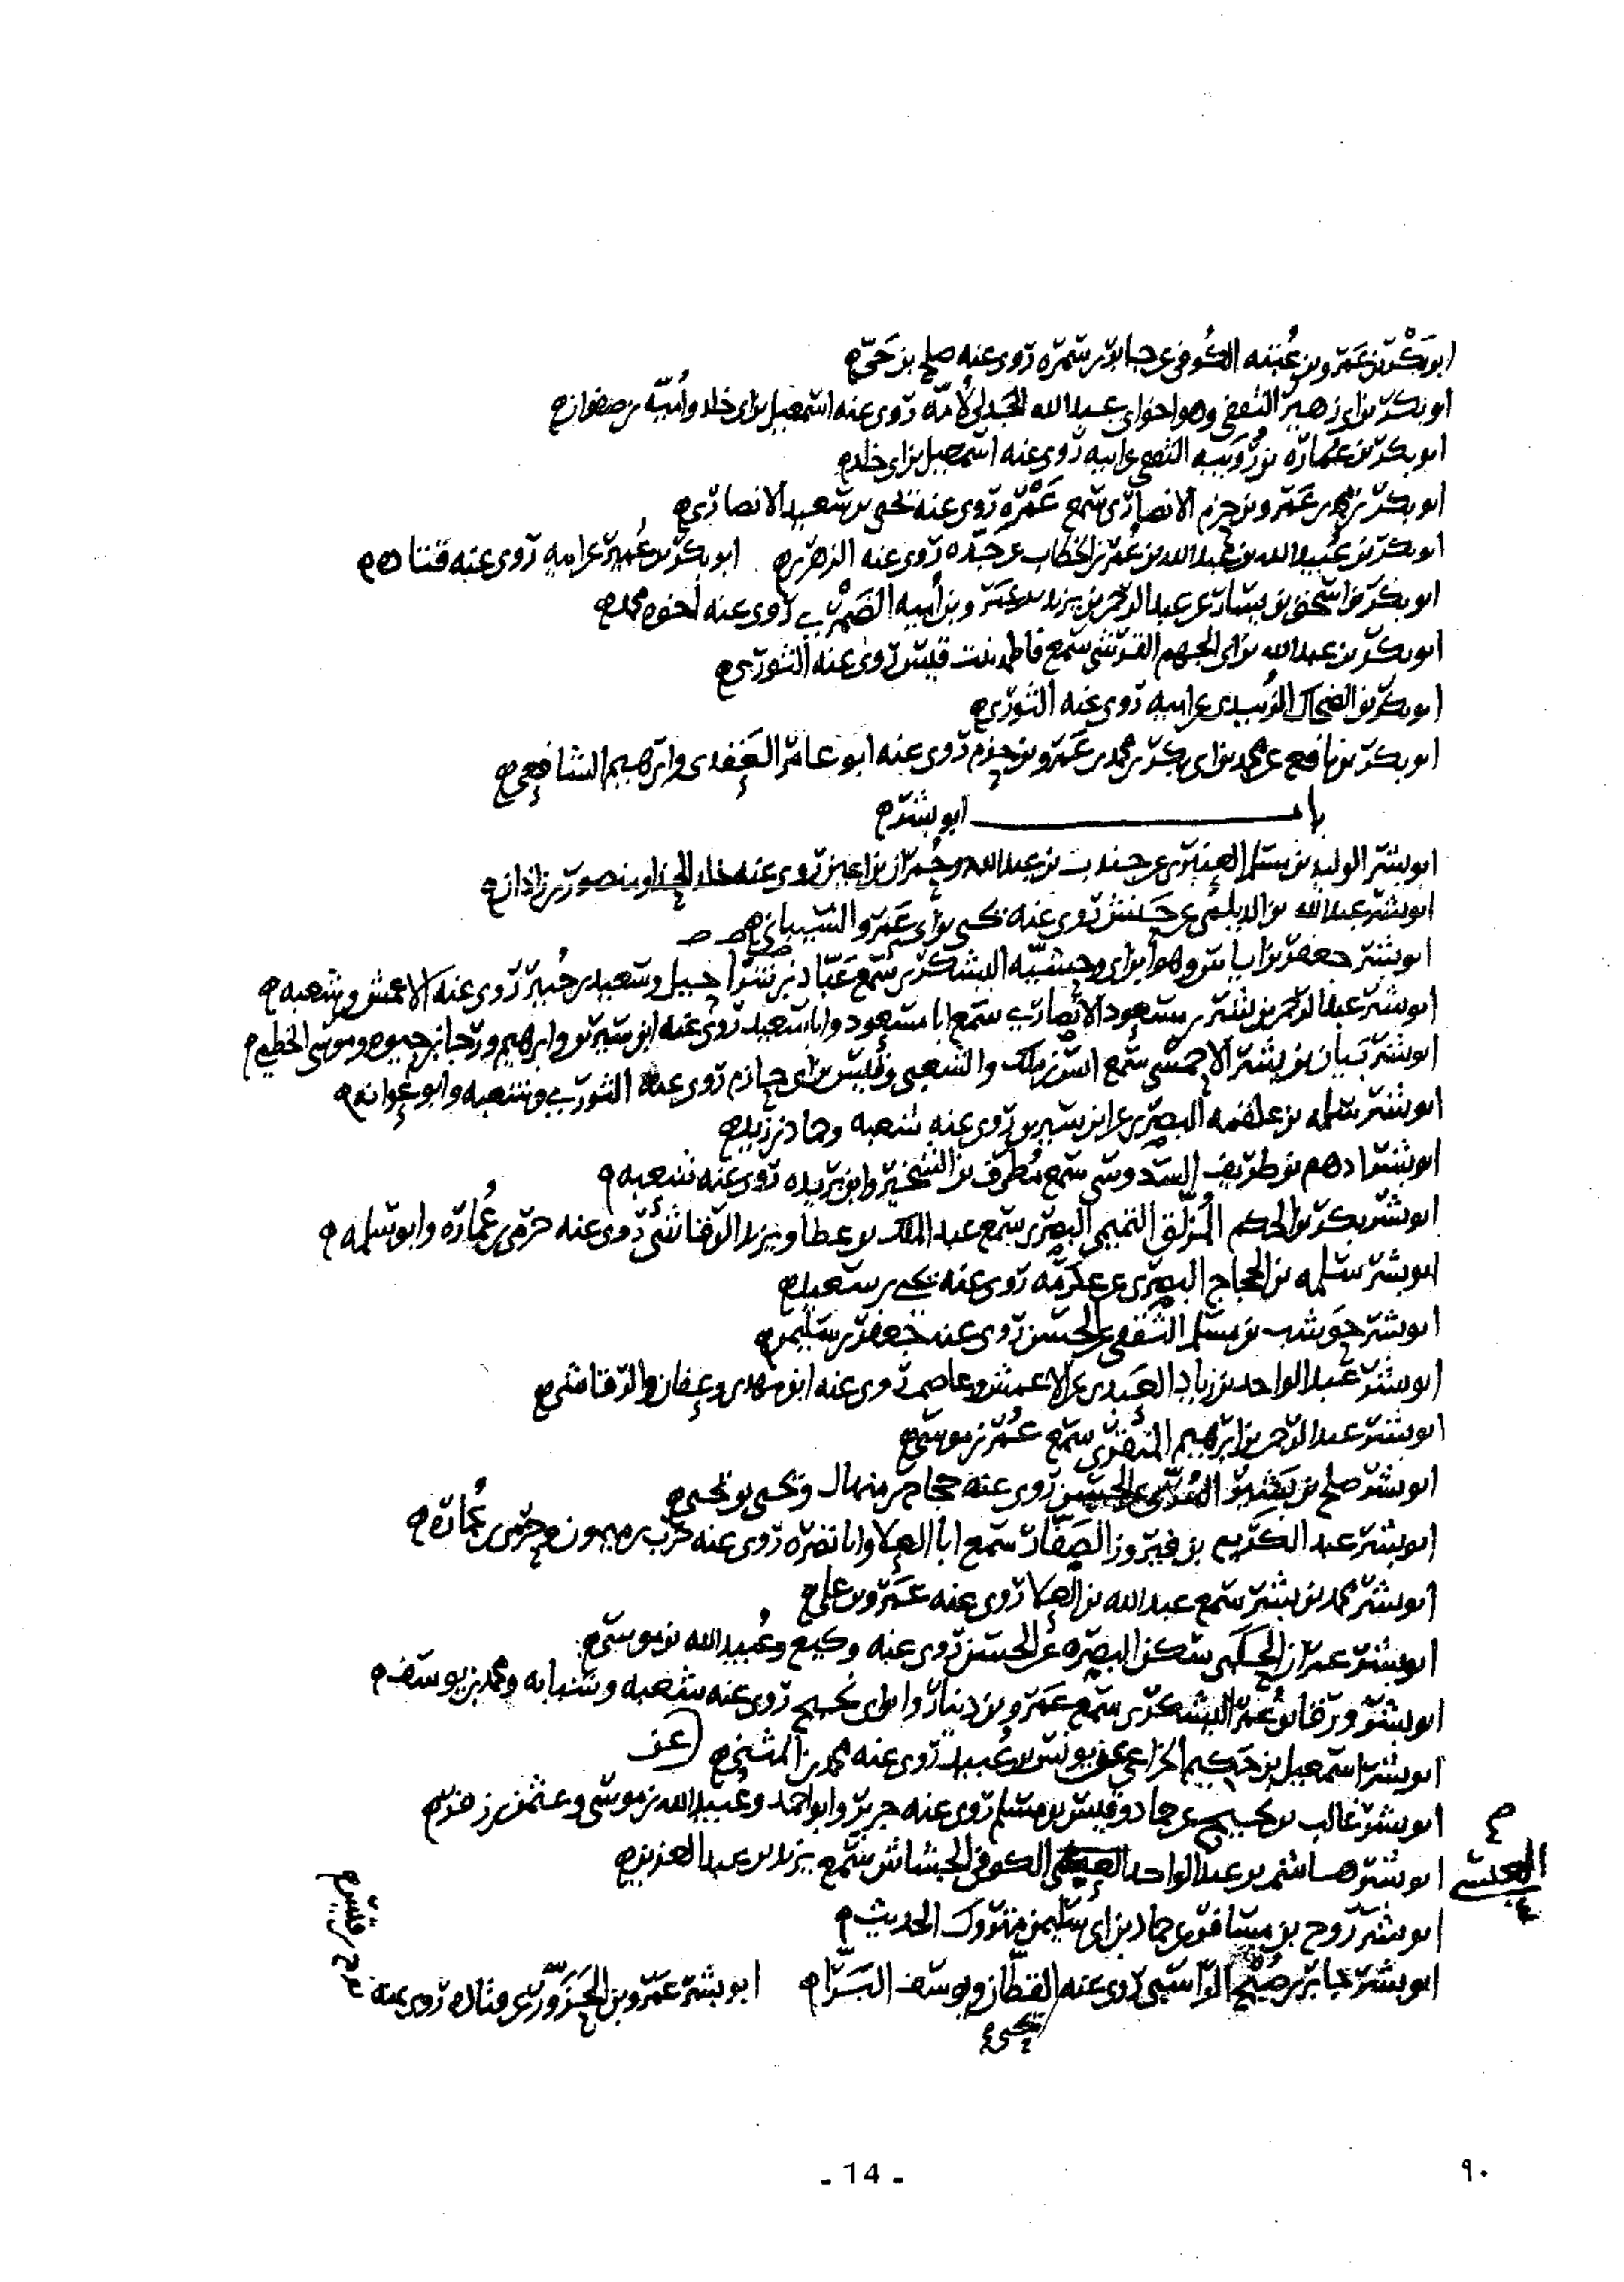 ابو بكر بن عمرو بن عتبه الكوفى عن جابر بن سمره روى عنه صلح بن حى
ابو بكر بن ابى زهير الثقفى وهو اخو ابى عبد الله الجدلى لامه روى عنه اسمعيل بن ابى خلد واميه بن صفوان
ابو بكر بن عماره بن رويبه الثقفى عن ابيه روى عنه اسمعيل بن ابى خلد
ابو بكر بن محمد بن عمرو بن حزم الانصارى سمع عمره روى عنه يحيى بن سعيد الانصارى
ابو بكر بن عبيد الله بن عبد الله بن عمر بن الخطاب عن جده روى عنه الزهرى ابو بكر بن عمير عن ابيه روى عنه قتاده
ابو بكر بن اسحق بن يسار عن عبد الرحمن بن يزيد بن عمرو بن اميه الضمرى روى عنه اخوه محمد
ابو بكر بن عبد الله بن ابى الجهم القرشى سمع فاطمه بنت قيس روى عنه الثورى
ابو بكر بن الضحاك الزبيدى عن ابيه روى عنه الثورى
ابو بكر بن نافع عن محمد بن ابى بكر بن محمد بن عمرو بن حزم روى عنه ابو عامر العقدى وابرهيم الشافعى
باب ابو بشر
ابو بشر الوليد بن مسلم العنبرى عن جندب بن عبد الله وحمران بن اعين روى عنه خلد الحذا ومنصور بن زاذان
ابو بشر عبد الله بن الديلمى عن حنش روى عنه يحيى بن ابى عمرو الشيبانى
ابو بشر جعفر بن اياس وهو ابن ابى وحشيه اليشكرى سمع عباد بن شراحيل وسعيد بن جبير روى عنه الاعمش وشعبه
ابو بشر عبد الرحمن بن بشر بن مسعود الانصارى سمع ابا مسعود وابا سعيد روى عنه ابن سيرين وابرهيم ورجا بن حيوه وموسى الخطمى
ابو بشر بيان بن بشر الاحمسى سمع انس بن ملك والشعبى وقيس بن ابى حازم روى عنه الثورى وشعبه وابو عوانه
ابو بشر سلمه بن علقمه البصرى عن ابن سيرين روى عنه شعبه وحماد بن زيد
ابو بشر ادهم بن طريف السدوسى سمع مطرف بن الشخير وابن بريده روى عنه شعبه
ابو بشر بكر بن الحكم المزلق التميمى البصرى سمع عبد الملك بن عطا ويزيد الرقاشى روى عنه حرمى بن عماره وابو سلمه
ابو بشر سلمه بن الحجاج البصرى عن عكرمه روى عنه يحيى بن سعيد
ابو بشر حوشب بن مسلم الثقفى عن الحسن روى عنه جعفر بن سليمن
ابو بشر عبد الواحد بن زياد العبدى عن الاعمش وعاصم روى عنه ابن مهدى وعفان والرقاشى
ابو بشر عبد الرحمن بن ابرهيم المنقرى سمع عمر بن موسى
ابو بشر صلح بن بشير المرى عن الحسن روى عنه حجاج بن منهال ويحيى بن يحيى
ابو بشر عبد الكريم بن فيروز الصفار سمع ابا العلا وابا نضره روى عنه حرب بن ميمون وحرمى بن عماره
ابو بشر محمد بن بشر سمع عبد الله بن العلا روى عنه عمرو بن على
ابو بشر عمران الحكمى سكن البصره عن الحسن روى عنه وكيع وعبيد الله بن موسى
ابو بشر ورقا بن عمر اليشكرى سمع عمرو بن دينار وابن ابى نجيح روى عنه شعبه وشبابه ومحمد بن يوسف
ابو بشر اسمعيل بن حكيم الخزاعى عن يونس بن عبيد روى عنه محمد بن المثنى
ابو بشر غالب بن نجيح عن حماد وقيس بن مسلم روى عنه جرير وابو احمد وعبيد الله بن موسى وعثمن بن زفر
ابو بشر هاشم بن عبد الواحد الكوفى الجشاش سمع يزيد بن عبد العزيز
ابو بشر روح بن مسافر عن حماد بن ابى سليمن متروك الحديث
ابو بشر جابر بن صبح الراسبى روى عنه القطان ويوسف البرا ابو بشر عمرو بن الحزور عن قتاده روى عنه
نوح بن قيس
يحيى
- 14 -
٩٠